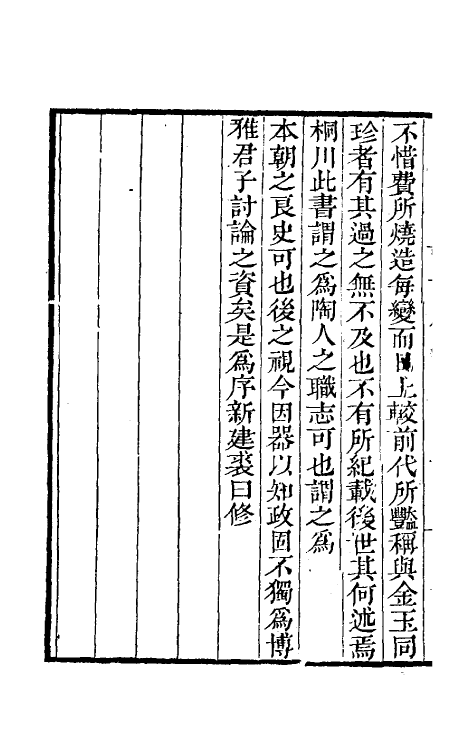 不惜費所燒造每變而日上較前代所豔稱與金玉同
珍者有其過之無不及也不有所紀載後世其何述焉
桐川此書謂之爲陶人之職志可也謂之爲
本朝之良史可也後之視今因器以知政固不獨爲博
雅君子討論之資矣是爲序新建裘曰修